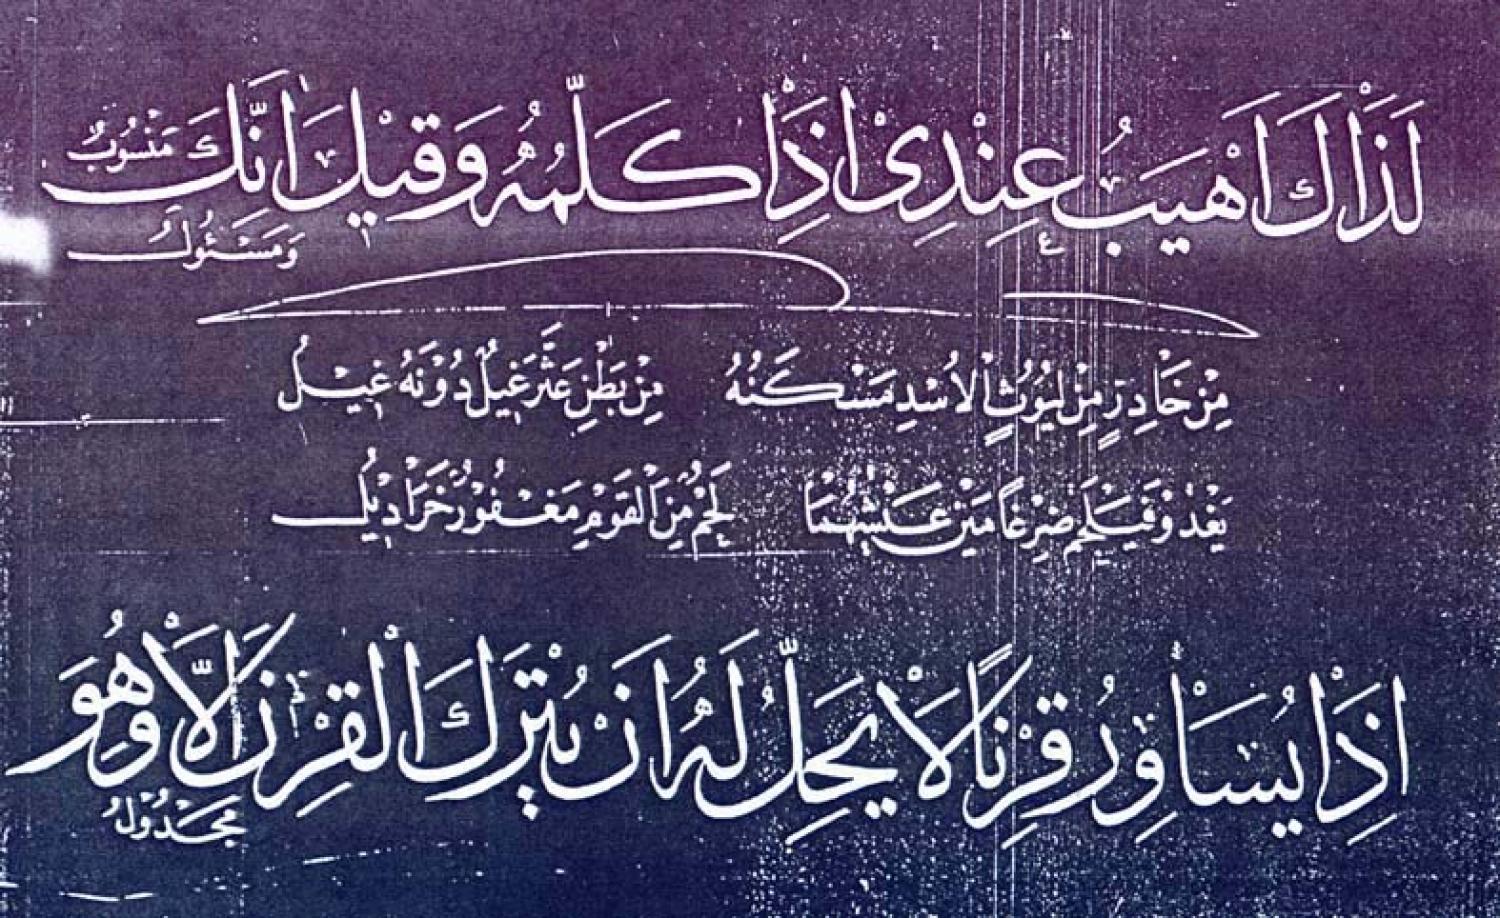 لَذَاكَ اَهْيَبُ عِنْدِىْ اِذْ اُكَلِّمُهُ وَقِيْلَ اِنَّكَ مَنْسُوبٌ
وَمَسْئُولُ
مِنْ خَادِرٍ مِنْ لُيُوْثِ الْاُسْدِ مَسْكَنُهُ مِنْ بَطْنِ عَثَّرَ غِيْلٌ دُوْنَهُ غِيْلُ
يَغْدُوْ فَيُلْحِمُ ضِرْغَامَيْنِ عَيْشُهُمَا لَحْمٌ مِنَ الْقَوْمِ مَعْفُوْرٌ خَرَادِيْلُ
اِذَا يُسَاوِرُ قِرْنًا لَا يَحِلُّ لَهُ اَنْ يَتْرُكَ الْقِرْنَ اِلَّا وَهُوَ
مَجْدُوْلُ